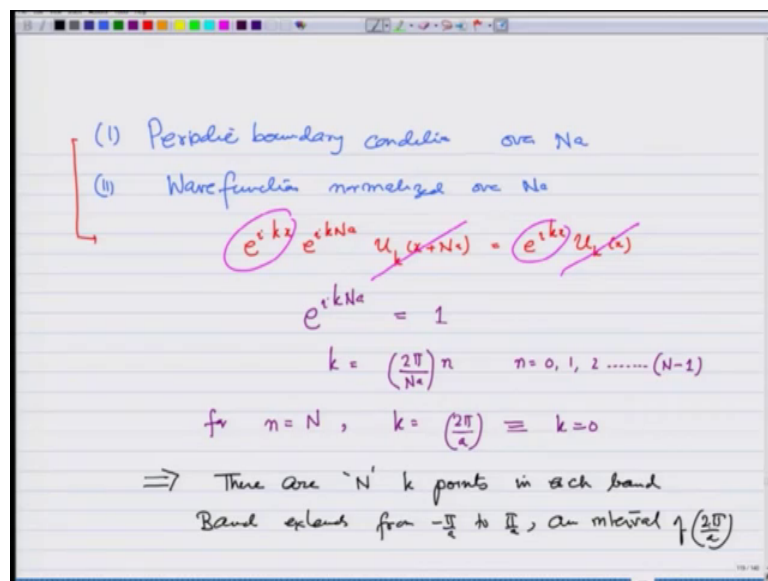 (I) Periodic boundary condition over Na
(II) Wavefunction normalized over Na
e^{ikx} e^{ikNa} u_k(x+Na) = e^{ikx} u_k(x)
e^{ikNa} = 1
k = (2π/Na) n n=0, 1, 2 ....... (N-1)
for n=N, k= (2π/a) ≡ k=0
⇒ There are 'N' k points in each band
Band extends from -π/a to π/a, an interval of (2π/a)